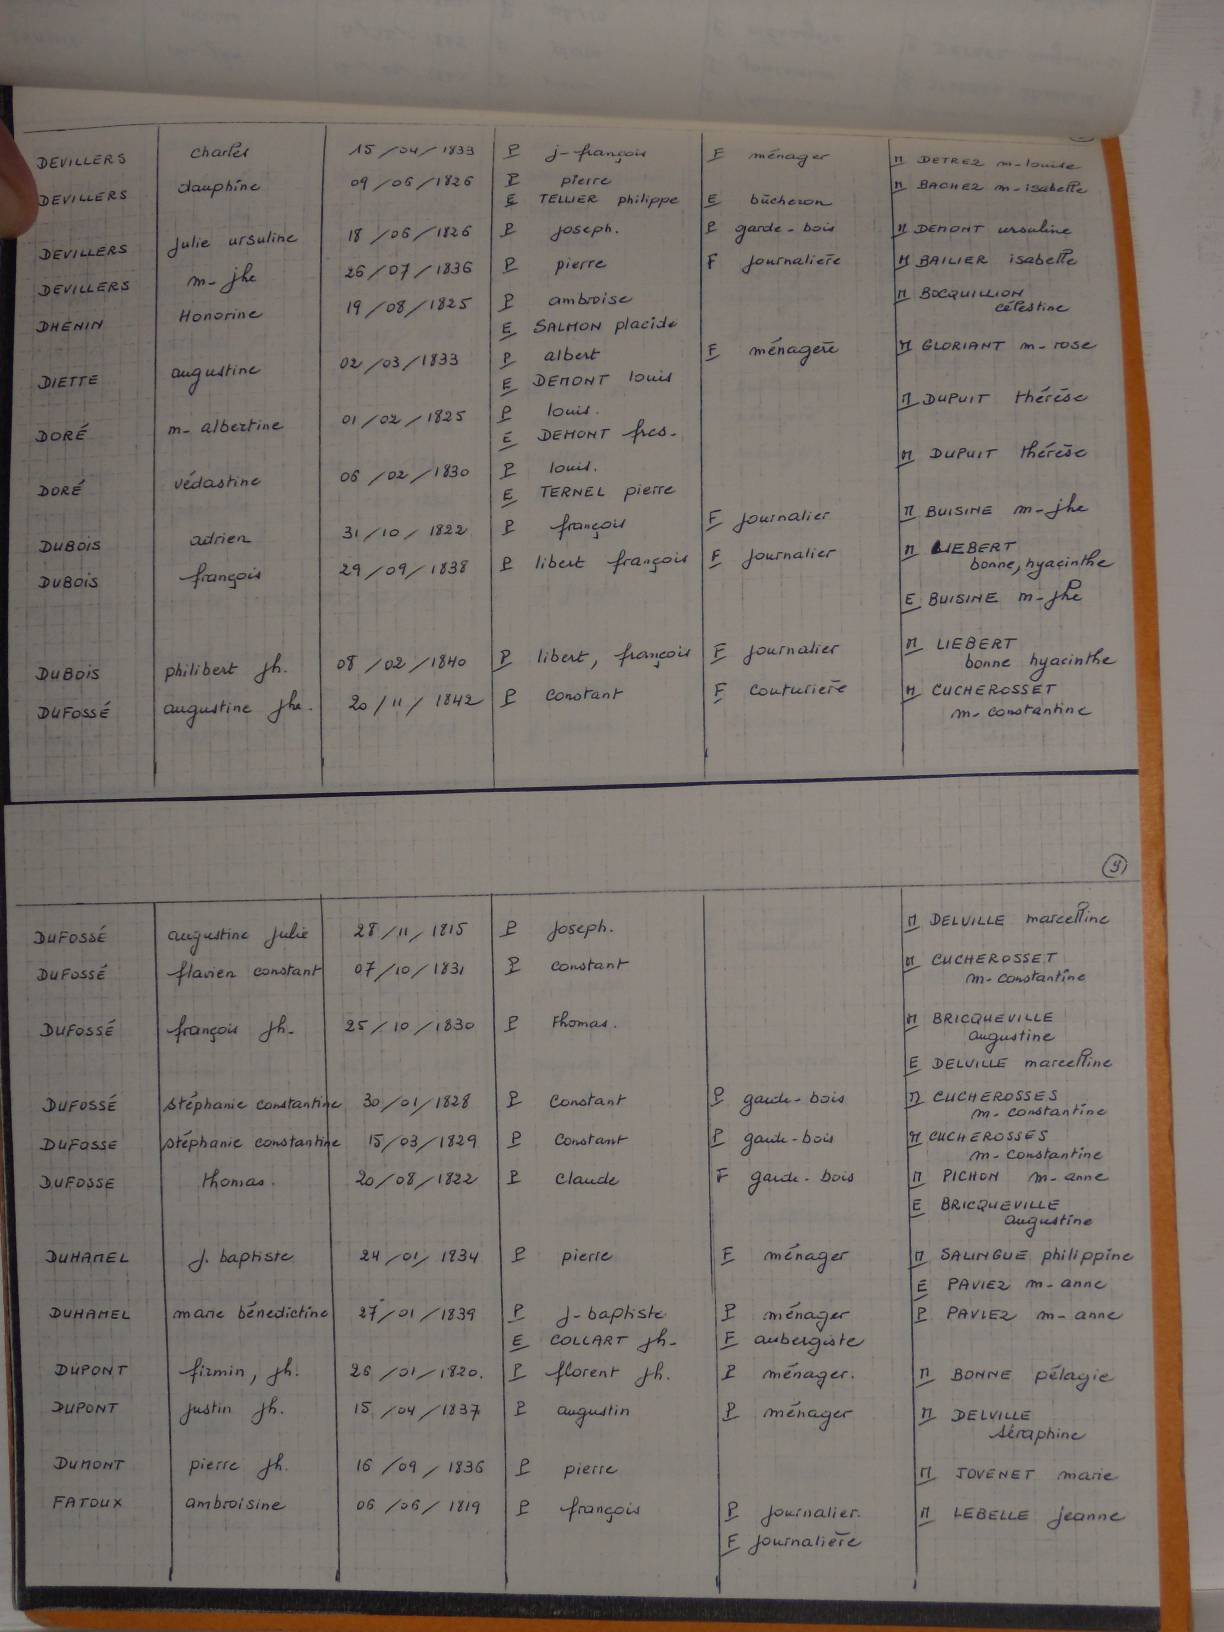 DEVILLERS charles 15/04/1833 P j-françois F ménager M DETREZ m-louise
DEVILLERS dauphine 09/06/1826 P pierre M BACHEZ m-isabelle
E TELLIER philippe E bûcheron
DEVILLERS julie ursuline 18/06/1826 P joseph. P garde-bois M DEMONT ursuline
DEVILLERS m-jhe 26/07/1836 P pierre F journalière M BAILIER isabelle
DHENIN Honorine 19/08/1825 P ambroise M BOCQUILLION
célestine
E SALMON placide
DIETTE augustine 02/03/1833 P albert F ménagère M GLORIANT m-rose
E DEMONT louis
DORÉ m-albertine 01/02/1825 P louis. M DUPUIT thérèse
E DEMONT fres-
DORÉ védastine 06/02/1830 P louis. M DUPUIT thérèse
E TERNEL pierre
DUBOIS adrien 31/10/1822 P françois F journalier M BUISINE m-jhe
DUBOIS françois 29/09/1838 P libert françois F journalier M LIEBERT
bonne, hyacinthe
E BUISINE m-jhe
DUBOIS philibert jh. 08/02/1840 P libert, françois F journalier M LIEBERT
bonne hyacinthe
DUFOSSÉ augustine jhe. 20/11/1842 P constant F couturière M CUCHEROSSET
m-constantine
9
DUFOSSÉ augustine julie 28/11/1815 P joseph. M DELVILLE marcelline
DUFOSSÉ flavien constant 07/10/1831 P constant M CUCHEROSSET
m-constantine
DUFOSSÉ françois jh- 25/10/1830 P Thomas. M BRICQUEVILLE
augustine
E DELVILLE marcelline
DUFOSSÉ stéphanie constantine 30/01/1828 P constant P garde-bois M CUCHEROSSES
m-constantine
DUFOSSE stéphanie constantine 15/03/1829 P constant P garde-bois M CUCHEROSSES
m-constantine
DUFOSSE thomas. 20/08/1822 P claude F garde-bois M PICHON m-anne
E BRICQUEVILLE
augustine
DUHAMEL j.baptiste 24/01/1834 P pierre F ménager M SALINGUE philippine
E PAVIEZ m-anne
DUHAMEL marie bénedictine 27/01/1839 P j-baptiste P ménager P PAVIEZ m-anne
E COLLART jh- F aubergiste
DUPONT firmin, jh. 26/01/1820. P florent jh. P ménager. M BONNE pélagie
DUPONT justin jh. 15/04/1837 P augustin P ménager M DELVILLE
séraphine
DUMONT pierre jh. 16/09/1836 P pierre M JOVENET marie
FATOUX ambroisine 06/06/1819 P françois P journalier. M LEBELLE jeanne
F journalière